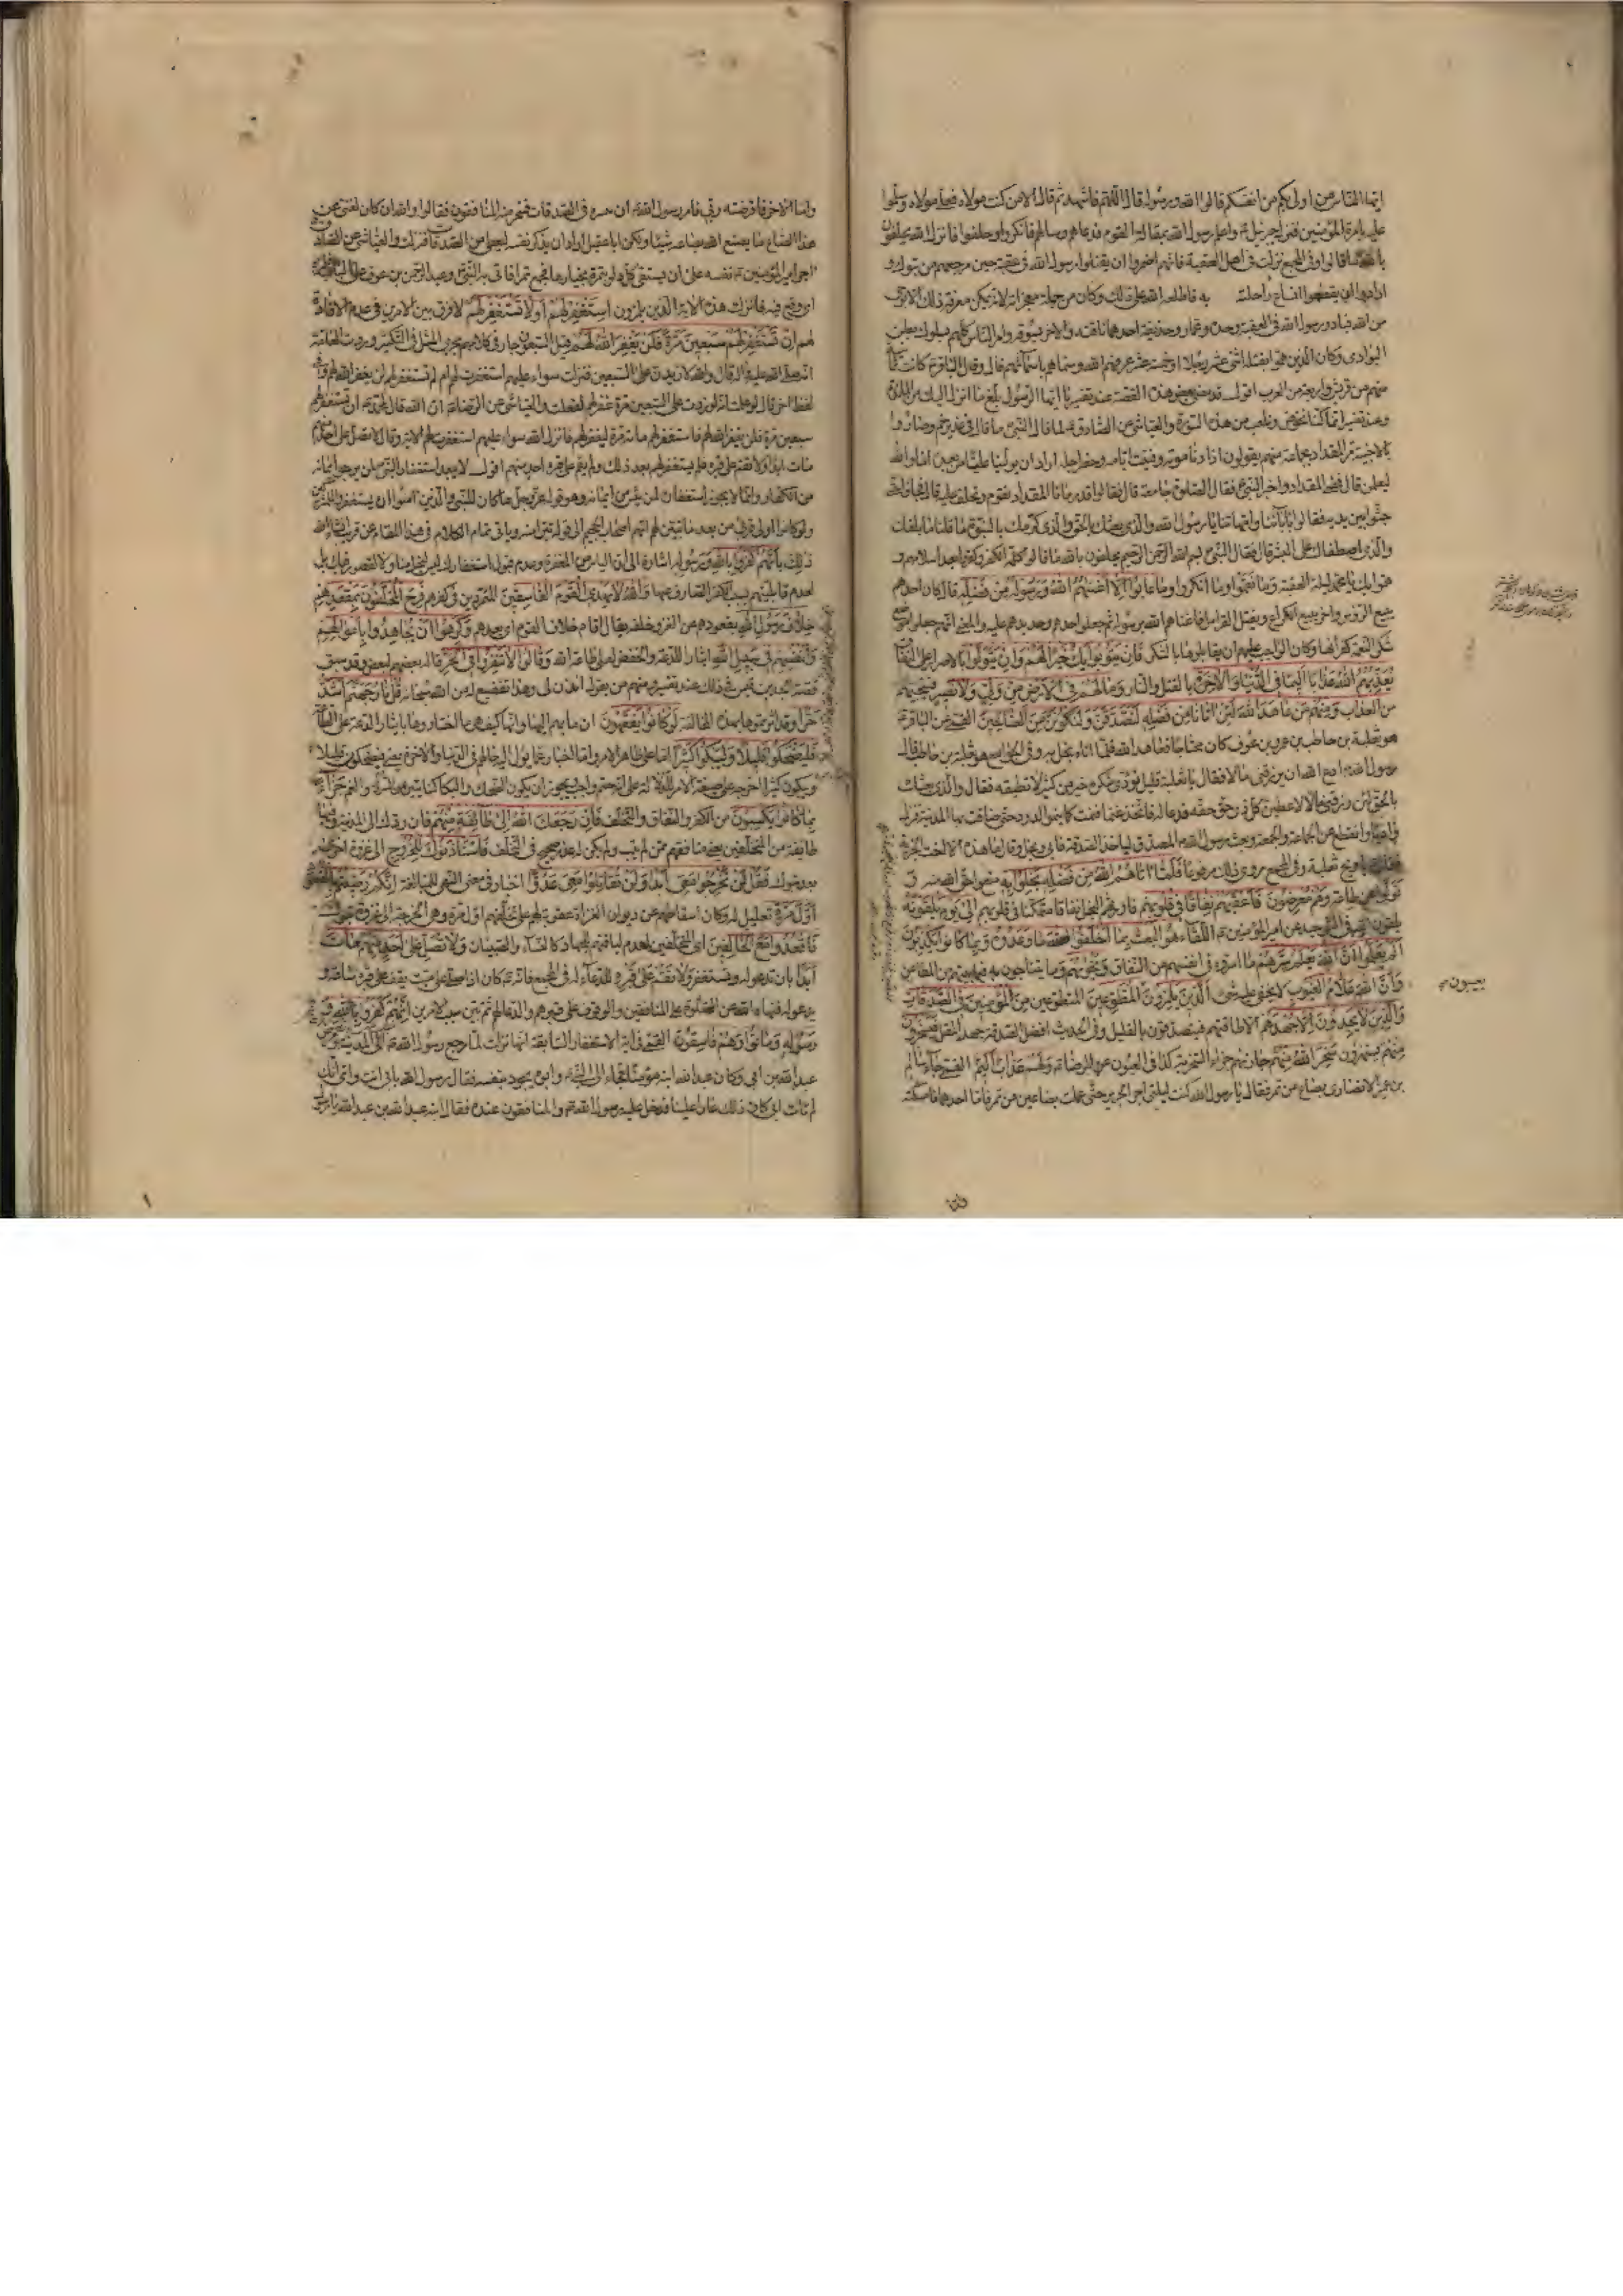 ايها الناس من اولى بكم من انفسكم قالوا الله ورسوله قال اللهم فاشهد ثم قال الا من كنت مولاه فعلي مولاه وسلموا
عليه بامرة المؤمنين فنزل جبرئيل واعلم رسول الله بمقالة القوم فدعاهم وسالهم فانكروا وحلفوا فانزل الله يحلفون
بالله ما قالوا وفي المجمع نزلت في اهل العقبة فانهم اضمروا ان يقتلوا رسول الله في عقبة حين مرجعهم من تبوك و
ارادوا ان يقطعوا انساع راحلته به فاطلعه الله على ذلك وكان من جملة معجزاته لانه لا يمكن معرفة ذلك الا
من الله فبادر رسول الله في العقبة وحده وعمار وحذيفة احدهما ناقته والاخر يسوقها وامر الناس كلهم بسلوك بطن
الوادي وكان الذين هموا بقتله اثنى عشر رجلا او خمسة عشر عرفهم الله وسماهم باسمائهم قال وقال الباقر كانت ثمانية
منهم من قريش واربعة من العرب اقول قد مضى بعض هذه القصة عند تفسير يا ايها الرسول بلغ ما انزل اليك من المائدة
وعند تفسير انما كنا نخوض ونلعب من هذه السورة والعياشي عن الصادق لما قال النبي ما قال في غدير خم وصاروا
بالاخبية مر المقداد بجماعة منهم يقولون اذا دنا موته وفنيت ايامه وحضر اجله اراد ان يولينا عليا من بعده اما والله
ليعلمن قال فمضى المقداد واخبر النبي فقال الصلوة جامعة قال فقالوا قد رمانا المقداد فقوموا نحلف عليه قال فجاؤا حتى
جثوا بين يديه فقالوا بابائنا وامهاتنا يا رسول الله والذي بعثك بالحق والذي كرمك بالنبوة ما قلنا ما بلغك
والذي اصطفاك على البشر قال فقال النبي بسم الله الرحمن الرحيم يحلفون بالله ما قالوا ولقد قالوا كلمة الكفر وكفروا بعد اسلامهم و
هموا بك يا محمد ليلة العقبة وما نقموا وما انكروا وما عابوا الا ان اغنيهم الله ورسوله من فضله قال كان احدهم
يبيع الرؤس واخر يبيع الكراع ويفتل القرامل فاغناهم الله برسوله ثم جعلوا حدهم وحديدهم عليه والمعنى انهم جعلوا موضع
شكر النعمة كفرانها وكان الواجب عليهم ان يقابلوها بالشكر فان يتوبوا يك خيرا لهم وان يتولوا بالاصرار على النفاق
يعذبهم الله عذابا اليما في الدنيا والاخرة بالقتل والنار وما لهم في الارض من ولي ولا نصير فينجيهم
من العذاب ومنهم من عاهد الله لئن اتانا من فضله لنصدقن ولنكونن من الصالحين القمي عن الباقر
هو ثعلبة بن حاطب بن عمرو بن عوف كان محتاجا فعاهد الله فلما اتاه بخل به وفي الجوامع هو ثعلبة بن حاطب قال
رسول الله ادع الله ان يرزقني مالا فقال يا ثعلبة قليل تؤدي شكره خير من كثير لا تطيقه فقال والذي بعثك
بالحق لئن رزقني مالا لاعطين كل ذي حق حقه فدعا له فاتخذ غنما فنمت كما ينمو الدود حتى ضاقت بها المدينة فنزل
واديا وانقطع عن الجماعة والجمعة وبعث رسول الله المصدق لياخذ الصدقة فابى وبخل وقال ما هذه الا اخت الجزية
فقال يا ويح ثعلبة وفي المجمع مروي ذلك مرفوعا فلما اتاهم الله من فضله بخلوا به منعوا حق الله منه و
تولوا عن طاعته وهم معرضون فاعقبهم نفاقا في قلوبهم فاورثهم البخل نفاقا متمكنا في قلوبهم الى يوم يلقونه
يلقون الله في التوحيد عن امير المؤمنين اللقاء هو البعث بما اخلفوا الله ما وعدوه وبما كانوا يكذبون
الم يعلموا ان الله يعلم سرهم ما اسروه في انفسهم من النفاق ونجويهم وما يتناجون به فيما بينهم من المطاعن
وان الله علام الغيوب لا يخفى عليه شئ الذين يلمزون المطوعين المتطوعين من المؤمنين في الصدقات
والذين لا يجدون الا جهدهم الا طاقتهم فيتصدقون بالقليل وفي الحديث افضل الصدقة جهد المقل فيسخرون
منهم يستهزؤن سخر الله منهم جازاهم جزاء السخرية كذا في العيون عن الرضا ولهم عذاب اليم القمي جاء سالم
بن عمير الانصاري بصاع من تمر فقال يا رسول الله كنت ليلتي اجر الجرير حتى عملت بصاعين من تمر فاما احدهما فامسكته
يعيبون
واما الاخر فاقرضته ربي فامر رسول الله ان ينثره في الصدقات فسخر منه المنافقون فقالوا والله ان كان الله لغني عن
هذا الصاع ما يصنع الله بصاعه شيئا ولكن ابا عقيل اراد ان يذكر نفسه ليعطى من الصدقات فنزلت والعياشي عن الصادق
اجر امير المؤمنين نفسه على ان يستقي كل دلو بتمرة بخيارها فجمع تمرا فاتى به النبي وعبد الرحمن بن عوف على الباب فلمزه
اي وقع فيه فانزلت هذه الاية الذين يلمزون استغفر لهم او لا تستغفر لهم لا فرق بين الامرين في عدم الافادة
لهم ان تستغفر لهم سبعين مرة فلن يغفر الله لهم قيل السبعون جار في كلامهم مجرى المثل في التكثير وروت العامة
انه صلى الله عليه واله قال والله لازيدن على السبعين فنزلت سواء عليهم استغفرت لهم ام لم تستغفر لهم لن يغفر الله لهم وفي
لفظ اخر قال لو علمت انه لو زدت على السبعين مرة غفر لهم لفعلت والعياشي عن الرضا ان الله قال لمحمد ان تستغفر لهم
سبعين مرة فلن يغفر الله لهم فاستغفر لهم مائة مرة ليغفر لهم فانزل الله سواء عليهم استغفرت لهم الاية وقال لا تصل على احد منهم
مات ابدا ولا تقم على قبره فلم يستغفر لهم بعد ذلك ولم يقم على قبر احد منهم اقول لا يبعد استغفار النبي لمن يرجو ايمانه
من الكفار وانما لا يجوز استغفاره لمن يئس من ايمانه وهو قوله عز وجل ما كان للنبي والذين امنوا ان يستغفروا للمشركين
ولو كانوا اولي قربى من بعد ما تبين لهم انهم اصحاب الجحيم الى قوله تبرأ منه وياتي تمام الكلام في هذا المقام عن قريب انشاء الله
ذلك بانهم كفروا بالله ورسوله اشارة الى ان الياس من المغفرة وعدم قبول استغفارك ليس لبخل منا ولا لقصور فيك بل
لعدم قابليتهم بسبب الكفر الصارف عنها والله لا يهدي القوم الفاسقين المتمردين في كفرهم فرح المخلفون بمقعدهم
خلاف رسول الله بقعودهم عن الغزو خلفه يقال اقام خلاف القوم اي بعدهم وكرهوا ان يجاهدوا باموالهم
وانفسهم في سبيل الله ايثارا للدعة والخفض على طاعة الله وقالوا لا تنفروا في الحر قاله بعضهم لبعض وقد سبق
قصة لجد بن قيس في ذلك عند تفسير ومنهم من يقول ائذن لي وهذا تفضيح له من الله سبحانه قل نار جهنم اشد
حرا وقد اثرتموها بهذه المخالفة لو كانوا يفقهون ان مابهم اليها وانها كيف هي ما اختاروها بايثار الدعة على الطاعة
فليضحكوا قليلا وليبكوا كثيرا اما على ظاهر الامر واما اخبار عما يؤل اليه حالهم في الدنيا والاخرة يعني فيضحكون قليلا
ويبكون كثيرا اخرجه على صيغة الامر للدلالة على انه حتم واجب ويجوز ان يكون الضحك والبكاء كنايتين عن السرور والغم جزاء
بما كانوا يكسبون من الكفر والنفاق والتخلف فان رجعك الله الى طائفة منهم فان ردك الى المدينة وفيها
طائفة من المتخلفين يعني منافقيهم ممن لم يتب ولم يكن له عذر صحيح في التخلف فاستاذنوك للخروج الى غزوة اخرى
بعد تبوك فقل لن تخرجوا معي ابدا ولن تقاتلوا معي عدوا اخبار في معنى النهي للمبالغة انكم رضيتم بالقعود
اول مرة تعليل له وكان اسقاطهم عن ديوان الغزاة عقوبة لهم على تخلفهم اول مرة وهي الخرجة الى غزوة تبوك
فاقعدوا مع الخالفين اي المتخلفين لعدم لياقتهم للجهاد كالنساء والصبيان ولا تصل على احد منهم مات
ابدا بان تدعو له وتستغفر ولا تقم على قبره للدعاء له في المجمع فانه كان اذا صلى على ميت يقف على قبره ساعة و
يدعو له فنهاه الله عن الصلوة على المنافقين والوقوف على قبرهم والدعاء لهم ثم بين سبب الامرين انهم كفروا بالله و
رسوله وماتوا وهم فاسقون القمي في اية الاستغفار السابقة انها نزلت لما رجع رسول الله الى المدينة ومرض
عبد الله بن ابي وكان عبد الله ابنه مؤمنا فجاء الى النبي وابوه يجود بنفسه فقال رسول الله بابي انت وامي انك
ان لم تات ابي كان ذلك عارا علينا فدخل عليه رسول الله والمنافقون عنده فقال ابنه عبد الله بن عبد الله يا رسول